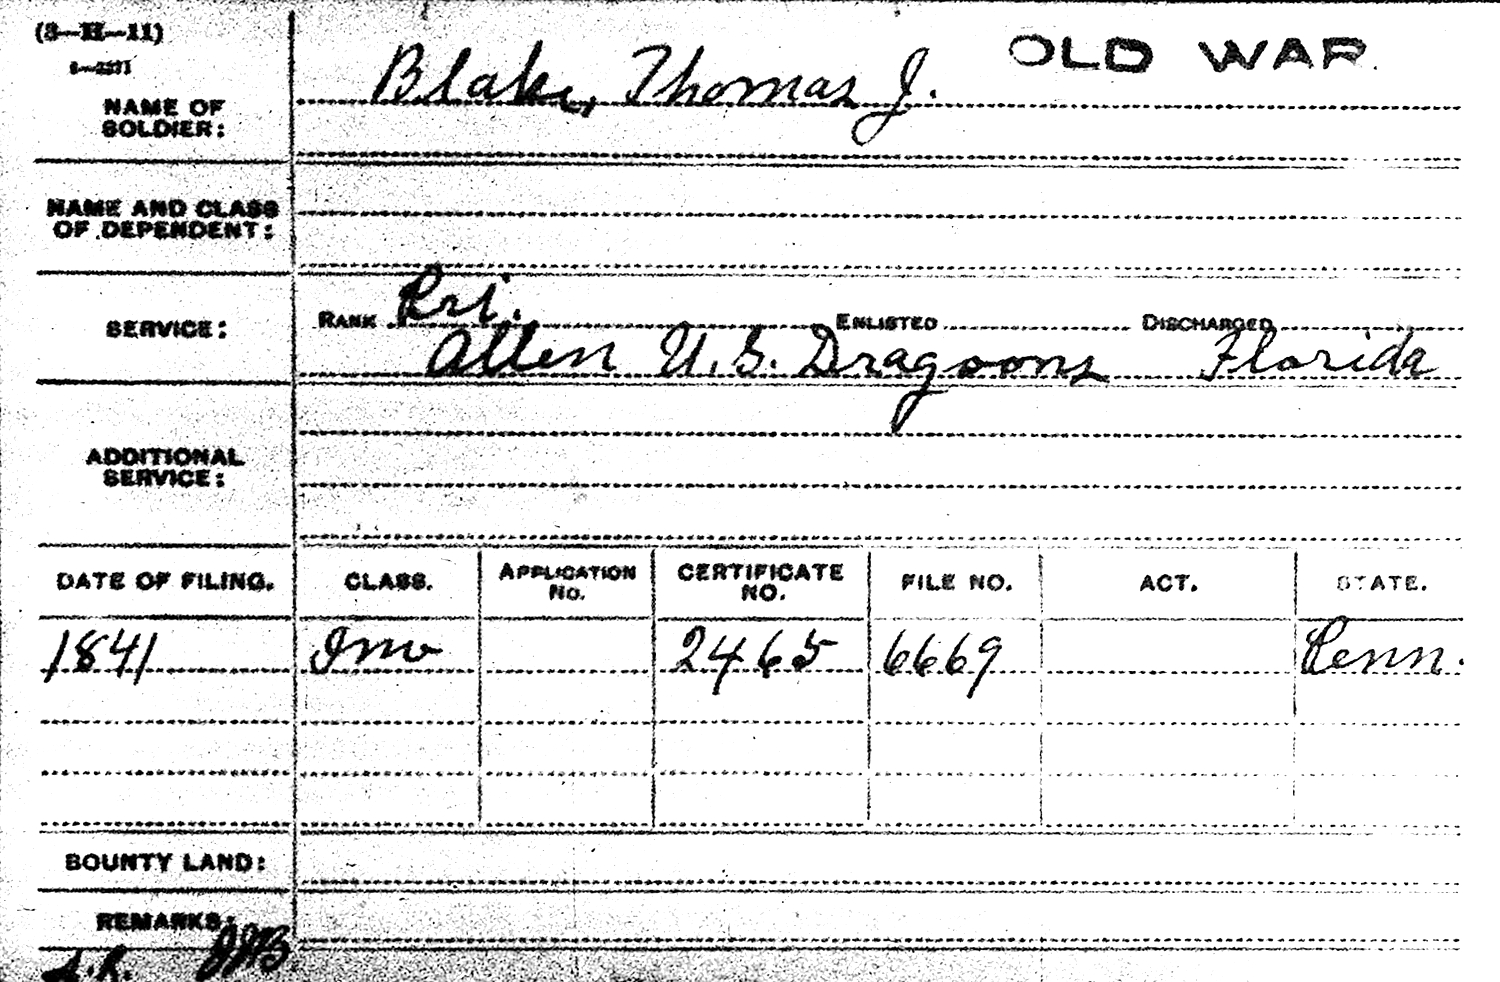 (3—H—11)
OLD WAR
Blake, Thomas J.
NAME OF
SOLDIER:
NAME AND CLASS
OF DEPENDENT:
Pri.
SERVICE: RANK ENLISTED DISCHARGED
Allen U.S. Dragoons Florida
ADDITIONAL
SERVICE:
DATE OF FILING. CLASS. APPLICATION No. CERTIFICATE NO. FILE NO. ACT. STATE.
1841 Inv 2465 6669 Penn.
BOUNTY LAND:
REMARKS: